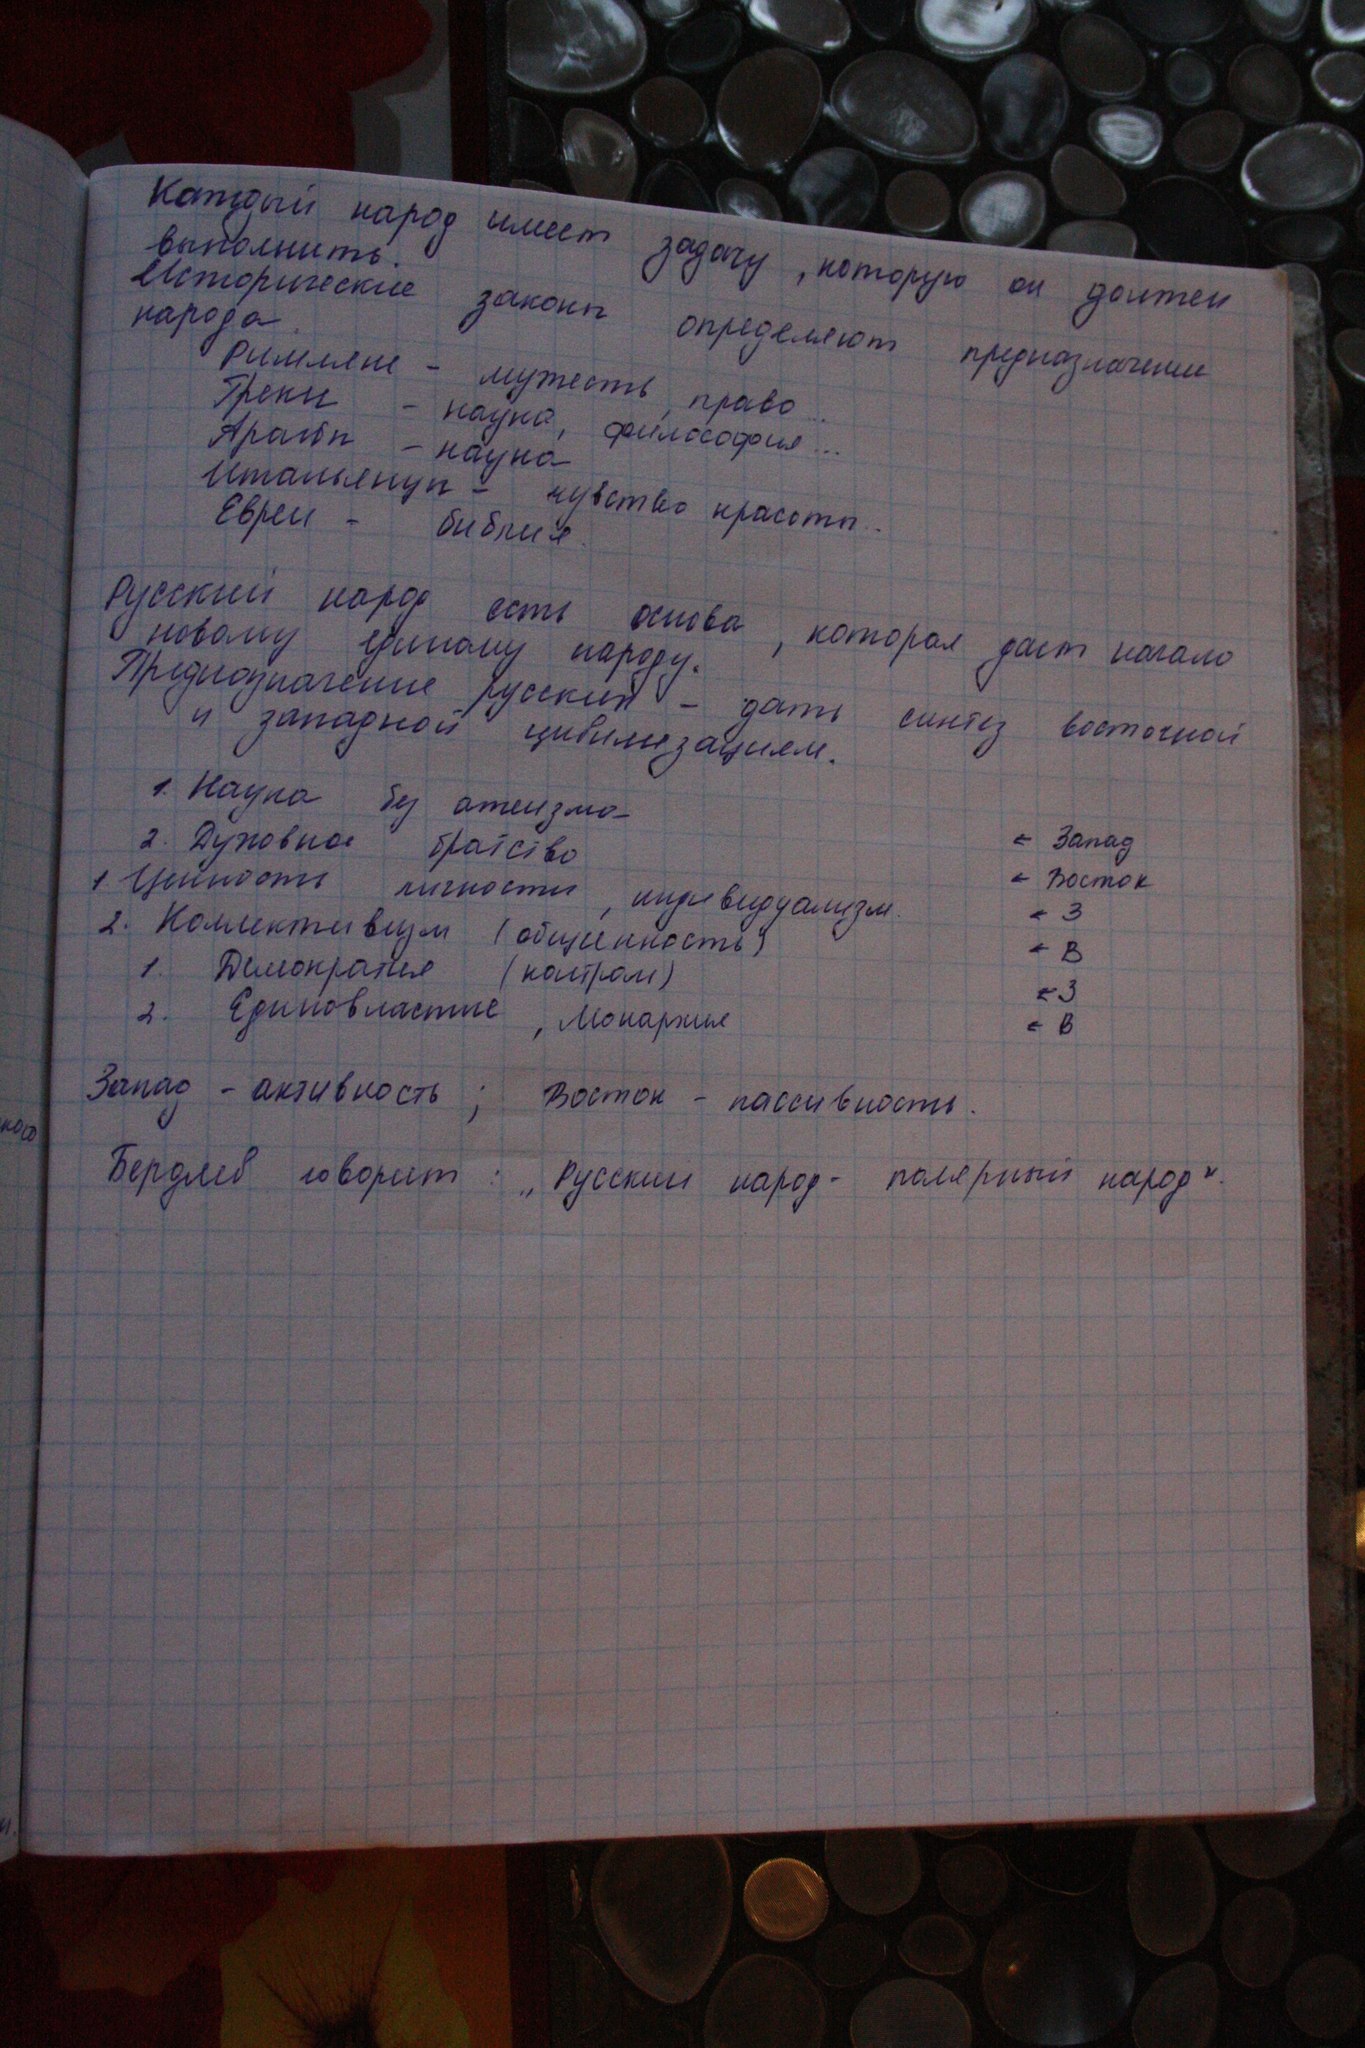 Каждый народ имеет задачу, которую он должен
выполнить.
Исторические законы определяют предназначение
народа.
Римляне - мужесть, право...
Греки - наука, философия...
Арабы - наука
Итальянцы - чувство красоты..
Евреи - библия.
Русский народ есть основа, которая даст начало
новому единому народу.
Предназначение русских - дать синтез восточной
и западной цивилизациям.
1. Наука без атеизма ← Запад
2. Духовное братство ← Восток
1. Ценность личности, индивидуализм. ← З
2. Коллективизм (общинность) ← В
1. Демократия (контроль) ← З
2. Единовластие, монархия ← В
Запад - активность; Восток - пассивность.
Бердяев говорит: „Русский народ - полярный народ".